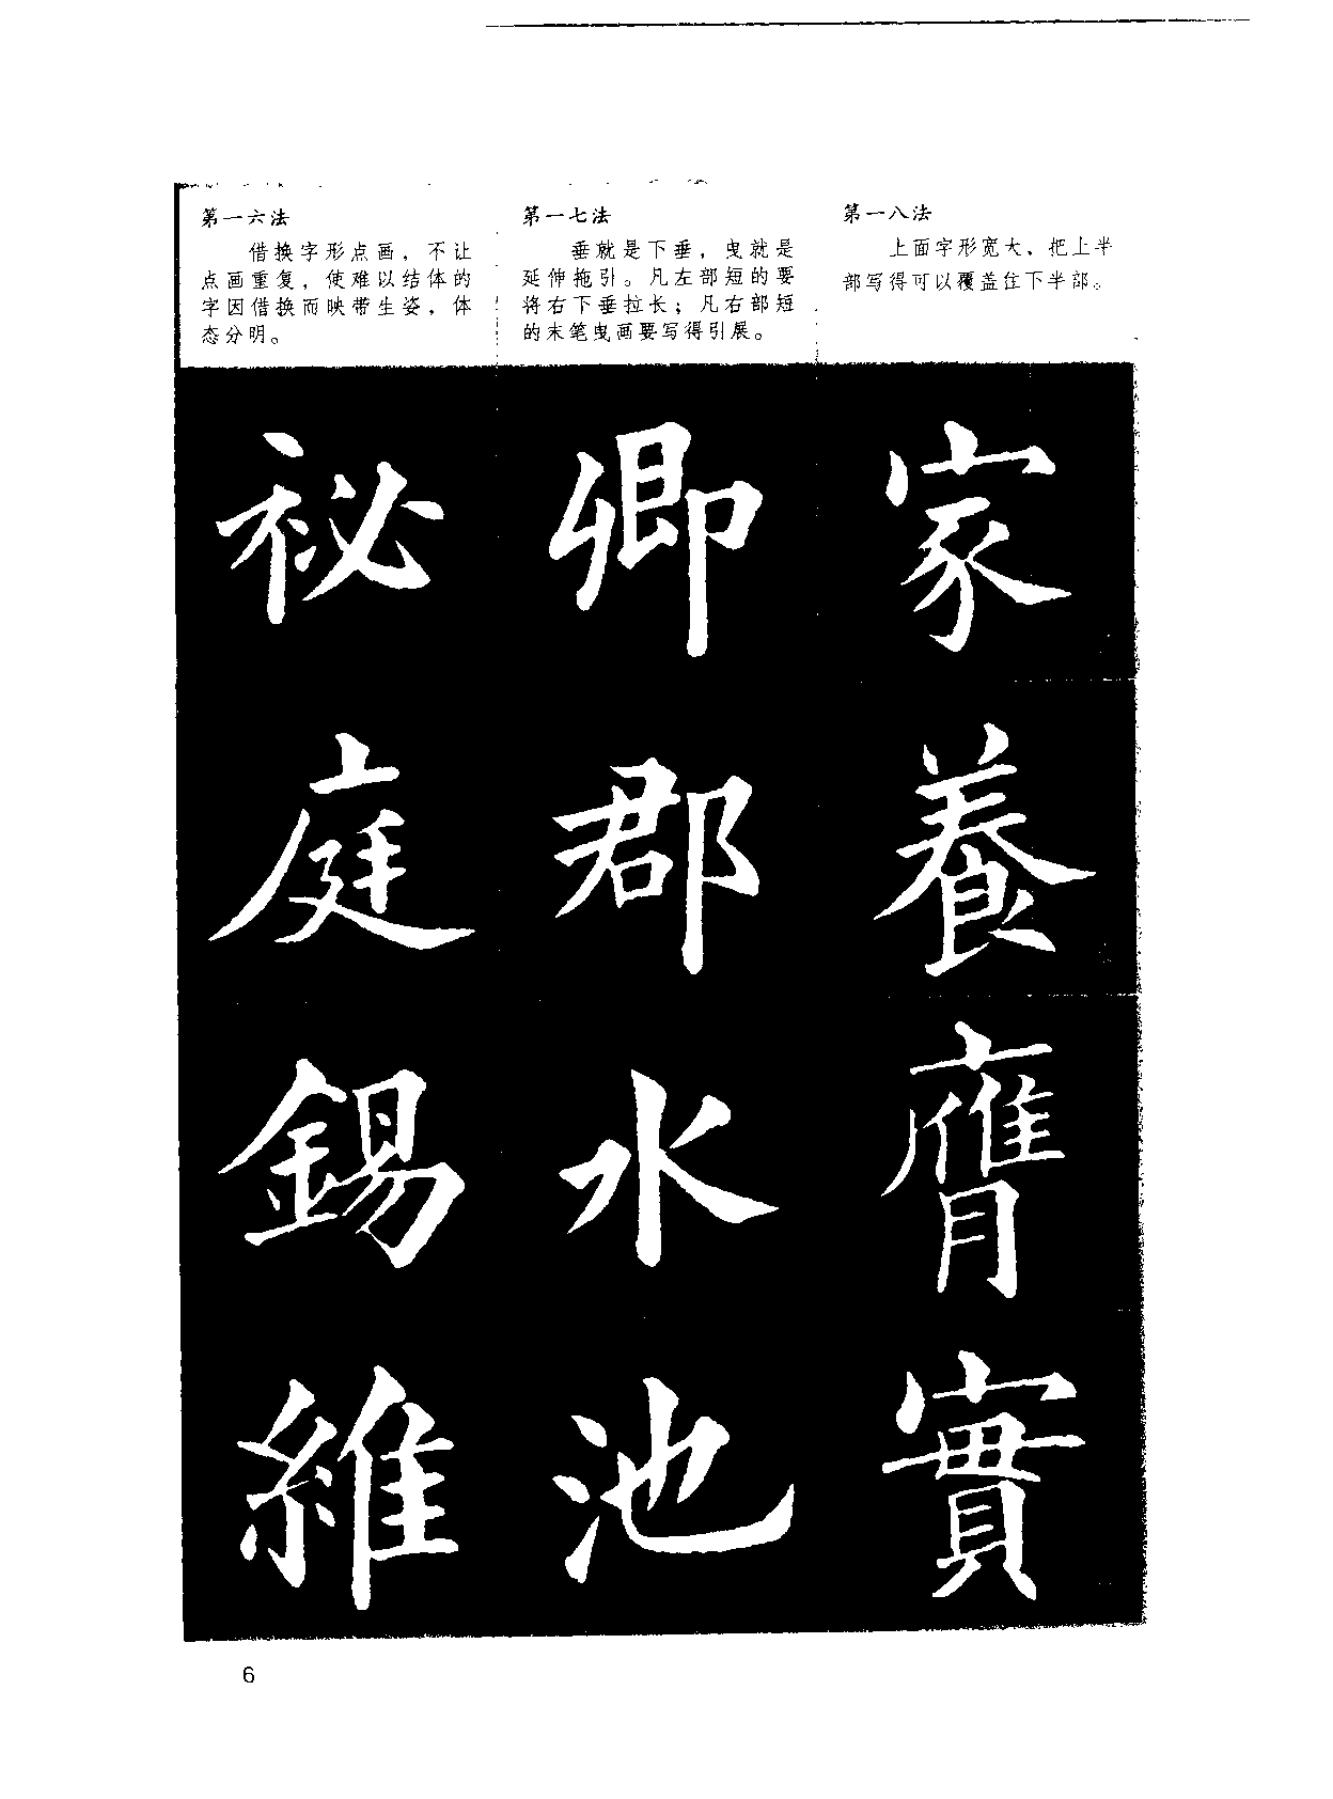 第一六法
借换字形点画，不让
点画重复，使难以结体的
字因借换而映带生姿，体
态分明。
第一七法
垂就是下垂，曳就是
延伸拖引。凡左部短的要
将右下垂拉长；凡右部短
的末笔曳画要写得引展。
第一八法
上面字形宽大，把上半
部写得可以覆盖住下半部。
祕
庭
錫
維
卿
郡
水
池
家
養
膺
實
6